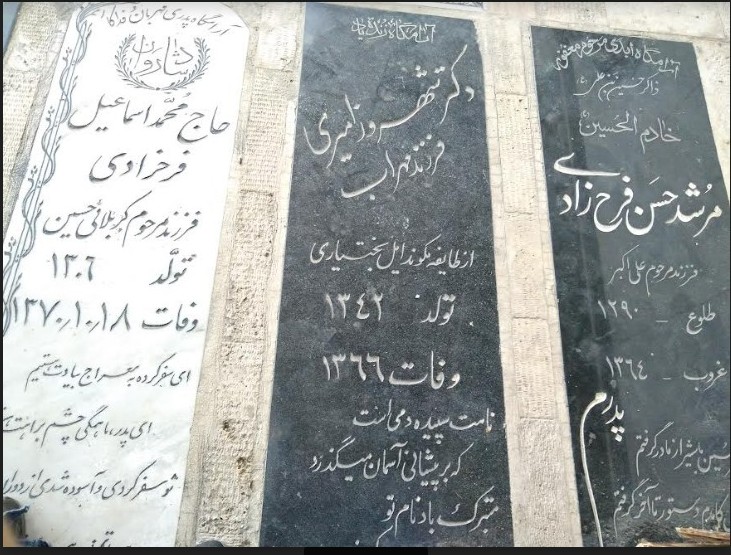 آرامگاه ابدی مرحوم مغفور
ذاکر حسین بن علی
خادم الحسین
مرشد حسن فرح زادی
فرزند مرحوم علی اکبر
طلوع - ۱۲۹۰
غروب - ۱۳۶۴
پدرم
با شیر از مادر گرفتم
دستور تا آخر گرفتم
آرامگاه زنده یاد
دکتر شهروز امیری
فرزند سهراب
از طایفه مکوند ایل بختیاری
تولد ۱۳۴۲
وفات ۱۳۶۶
نامت سپیده دمی است
که بر پیشانی آسمان میگذرد
متبرک باد نام تو
آرامگاه پدری مهربان و فداکار
شادروان
حاج محمد اسماعیل
فرخزادی
فرزند مرحوم کربلائی حسین
تولد ۱۳۰۶
وفات ۱۳۷۰/۱۰/۱۸
ای سفر کرده به معراج بیادت هستیم
ای پدر، ما همگی چشم براهت
تو سفر کردی و آسوده شدی از دوران